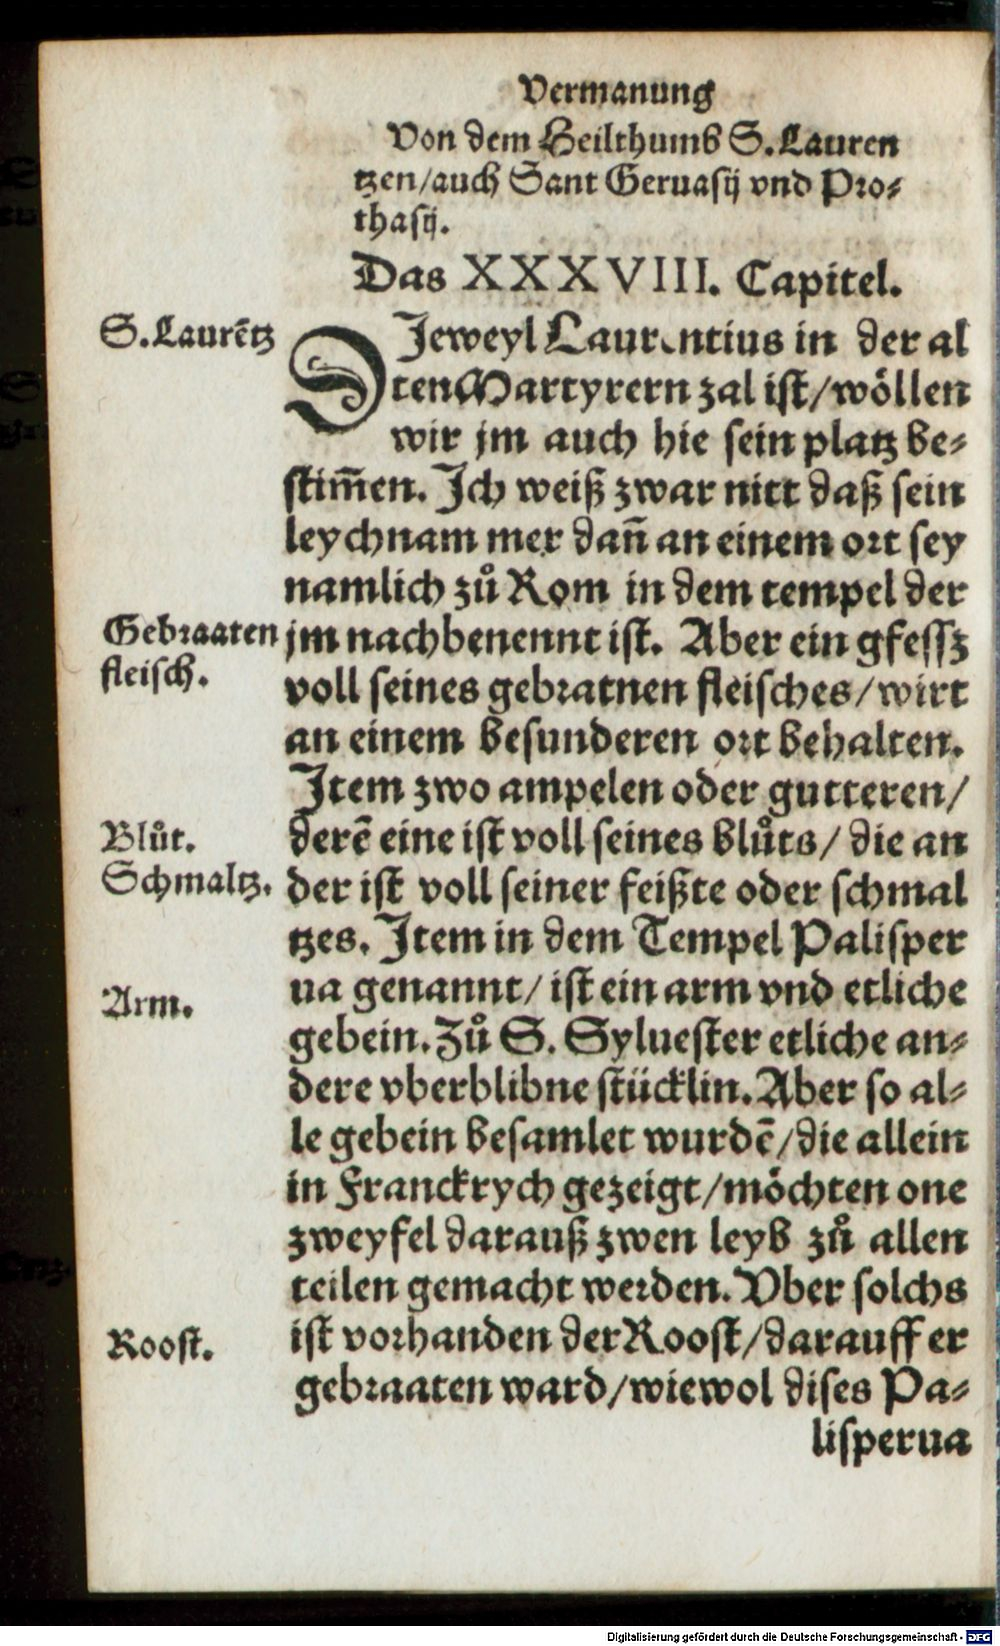 Vermanung
Von dem Heilthumb S. Lauren
tzen/auch Sant Geruasij vnd Pro⸗
thasij.
Das XXXVIII. Capitel.
S. Laurētz
DJeweyl Laurentius in der al
ten Martyrern zal ist/wöllen
wir jm auch hie sein platz be⸗
stim̄en. Jch weiß zwar nitt daß sein
leychnam mer dañ an einem ort sey
namlich zů Rom in dem tempel der
Gebraaten
fleisch.
jm nachbenennt ist. Aber ein gfessz
voll seines gebratnen fleisches/wirt
an einem besunderen ort behalten.
Jtem zwo ampelen oder gutteren/
Blůt.
Schmaltz.
derē eine ist voll seines blůts/die an
der ist voll seiner feißte oder schmal
tzes. Jtem in dem Tempel Palisper
Arm.
ua genannt/ist ein arm vnd etliche
gebein. Zů S. Syluester etliche an⸗
dere vberblibne stücklin. Aber so al⸗
le gebein besamlet wurdē/die allein
in Franckrych gezeigt/möchten one
zweyfel darauß zwen leyb zů allen
teilen gemacht werden. Vber solchs
Roost.
ist vorhanden der Roost/darauff er
gebraaten ward/wiewol dises Pa⸗
lisperua
Digitalisierung gefördert durch die Deutsche Forschungsgemeinschaft - DFG